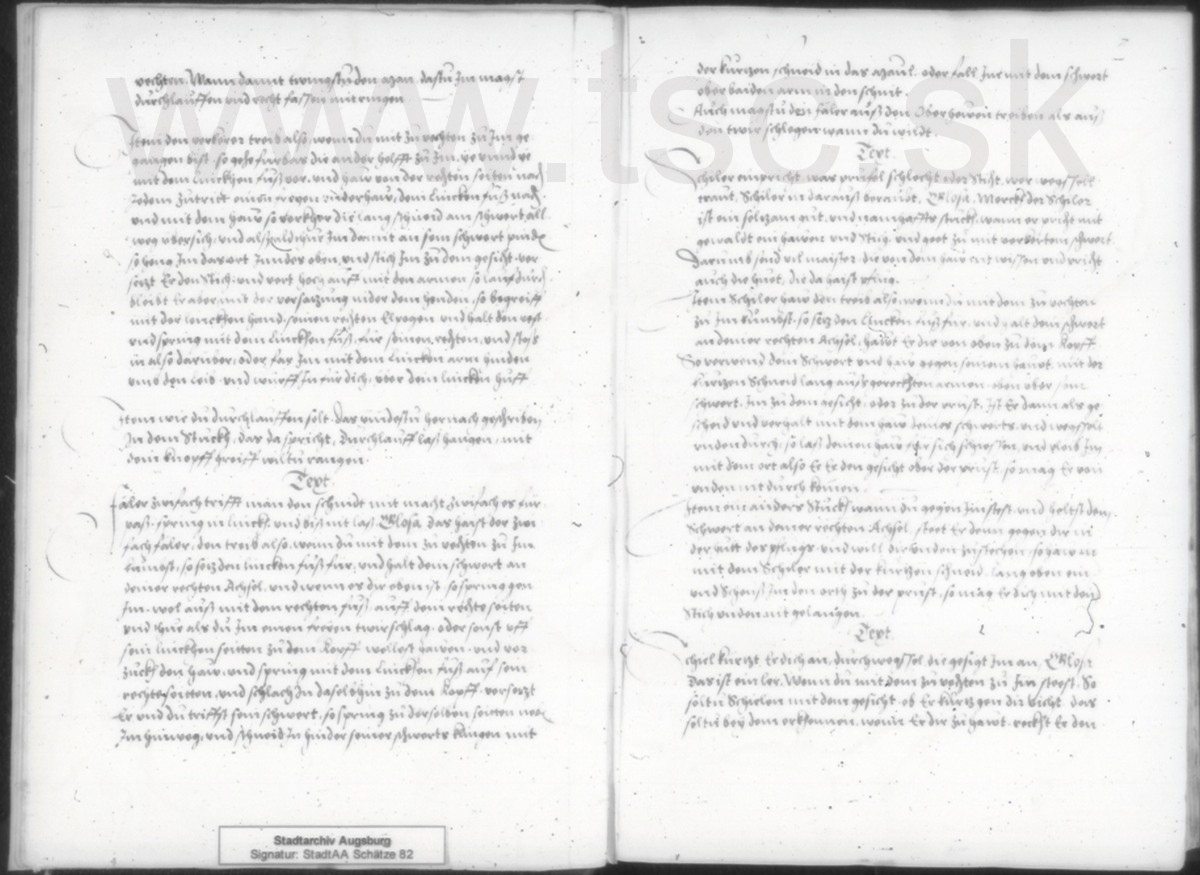 vechten. Wann damit twingstu den man, dastu Im magst
durchlauffen vnd recht fassen mit ringen
Item den verkerer treib also, wenn du mit zu vechten zu Im ge
gangen bist, so gehe fürbas die ander helfft zu Im, ye vnnd ye
mit dem linckhen fuß vor, vnd haw von der rechten seiten nach
Jedem Zutrit einen freyen vnderhaw, dem lincken fuß nach
vnd mit dem haw so verkher die lang schneid am schwert all
weg vbersich, vnd als bald du Im damit an sein schwert pindest
so heng Im das ort Inndes oben, vnd stich Im zu dem gesicht, ver
setzt Er den Stich, vnd vert hoch auff mit den armen so lauf durch
bleibt Er aber mit der versatzung nider dem henden, so begreiff
mit der linckhen hand, seinen rechten Elpogen vnd halt den vest
vnd spring mit dem linckhen fuß, für seinen rechten, vnd stos
in also darüber, oder far Im mit dem lincken arm hinden
vmb den leib, vnd würff In für dich, vber dein linckhn hüff
Item wie du durchlauffen solt. Das vindestu hernach geschriben
In dem Stuckh, das da spricht, Durchlauff las hangen, mit
dem knopff greiff wiltu rangen.
Text
Faler zwifach trifft man den schnidt mit macht Zwifach es für
paß, spring in linck, vnd biß nit laß. Glosa. Das haist der zwi
fach faler, den treib also, wann du mit dem zu vechten zu Im
kumest, so setz den lincken fuß für, vnd halt dein schwert an
deiner rechten Achsel, vnd wenn es dir eben ist, so spring gen
Im, wol auß mit dem rechten fuß, auff dein rechte seiten
vnd thue als du Im einen freyen twirschlag, oder sonst vff
sein linckhen seiten zu dem Kopff wollest hawen, vnd ver
zuck den haw, vnd spring mit dem linckhen fuß auf sein
rechte seitten, vnd schlach In daselbshin zu dem Kopff, versetzt
Er vnd du triffst sein schwert, so spring zu derselben seitten neben
Im hinweg, vnd schneid In hinder seiner schwerts klingen mit
der kurtzen schneid in das Maul, oder fall Im mit dem schwert
vber baiden arm in den schnit.
Auch magstu den faler auß den Oberhewen treiben als auß
den twir schlegen wann du wildt.
Text
Schiler einpricht, was püfel schlecht oder Sticht, wer wechssell
trawt, Schiler in darauß beraubt, Glosa. Merckh der Schiler
ist ein seltzam gut, vnd namhaffts stuck, wann er pricht mit
gewaldt ein hawen vnd Stich, vnd geet zu mit verkertem schwert
Darumb sind vil maister die von dem haw nit wissen vnd pricht
auch die huet, die da haist pflug.
Item Schiler haw den treib also, wenn du mit dem zu vechten
zu Im kumbst, so setz den lincken fuß fur, vnd halt dein schwert
an deiner rechten Achsel, hawt Er dir von oben zu dem Kopff
So verwend dein Schwert vnd haw gegen seinem hawt, mit der
kurtzen Schneid lang auß gerechten armen, oben vber sein
schwert, Im zu dem gesicht, oder zu der prust. Ist Er dann als ge
scheid vnd verhalt mit dem haw deines schwerts, vnd wechsselt
vnden durch, so las deinen haw für sich schiessen, vnd pleib Im
mit dem ort also Er Er den gesicht oder der prust, so mag Er von
vnden nit durch kumen.
Item ein anders Stuck wann du gegen Im steest, vnd heltst dein
Schwert an deiner rechten Achsel, steet Er denn gegen dir in
der hutt des pflugs, vnd will dir vnden zu stechen, so haw in
mit dem Schiler mit der kurtzen schneid, lang oben ein
vnd Scheuß Im den orth zu der prust, so mag Er dich mit dem
Stich vnden nit gelangen.
Text
Schiel kurtzt, Er dich an, durchwechssel, die gesigt Im an, Glosa
Das ist ein ler. Wenn du mit dem zu vechten zu Im steest, So
soltu Schielen mit dem gesicht, ob Er kurtz gen dir vicht, das
soltu bey dem erkhennen, wenn Er dir zu hawt, reckht Er den
www.tsc.sk
Stadtarchiv Augsburg
Signatur: StadtAA Schätze 82